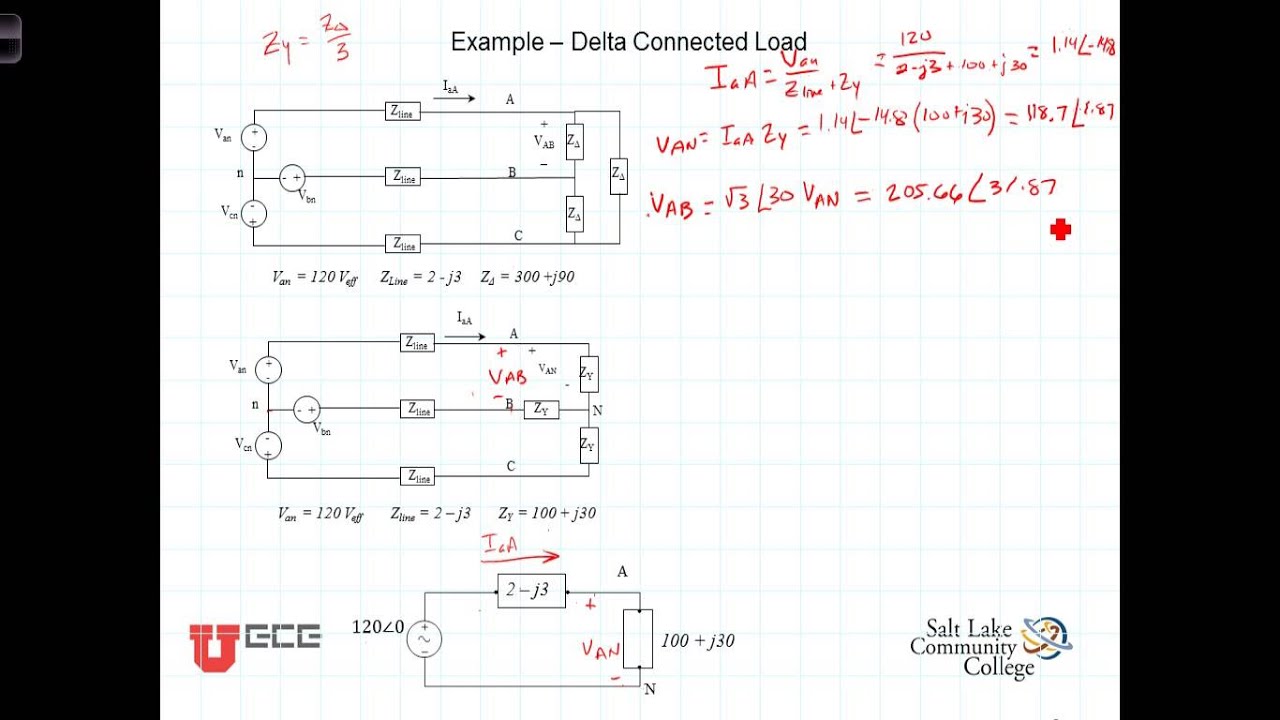 Z_Y = Z_Δ/3
Example – Delta Connected Load
I_aA = V_an / (Z_line + Z_Y) = 120 / (2-j3 + 100 + j30) = 1.14∠-14.8
V_AN = I_aA Z_Y = 1.14∠-14.8 (100+j30) = 118.7∠1.87
V_AB = √3∠30 V_AN = 205.66∠31.87
I_aA
A
Z_line
V_an
+
-
+
V_AB
−
Z_Δ
Z_Δ
n
- +
V_bn
Z_line
B
V_cn
-
+
Z_Δ
Z_line
C
V_an = 120 V_eff Z_Line = 2 - j3 Z_Δ = 300 +j90
I_aA
A
Z_line
V_an
+
-
+
V_AB
−
+
V_AN
-
Z_Y
n
- +
V_bn
Z_line
B
Z_Y
N
V_cn
-
+
Z_Y
C
Z_line
V_an = 120 V_eff Z_line = 2 – j3 Z_Y = 100 + j30
I_aA
A
2 – j3
120∠0
+
~
−
+
V_AN
−
100 + j30
N
U ECE
Salt Lake
Community
College